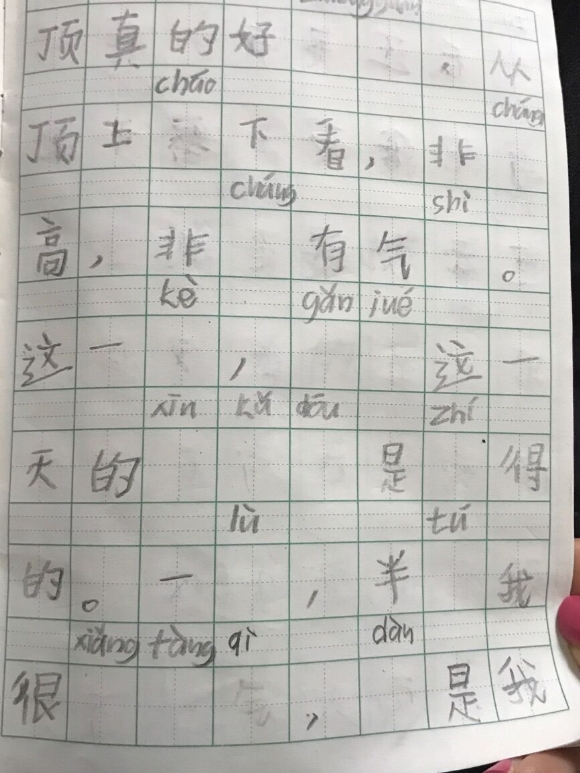 顶真的好 。从
cháo cháng
顶上 下看，非
cháng shì
高，非 有气 。
kè gǎn jué
这一 ， 这一
xīn kǔ dōu zhí
天的 是 得
lù tú
的。一 ，半 我
xiǎng tàng qì dàn
很 ，是我